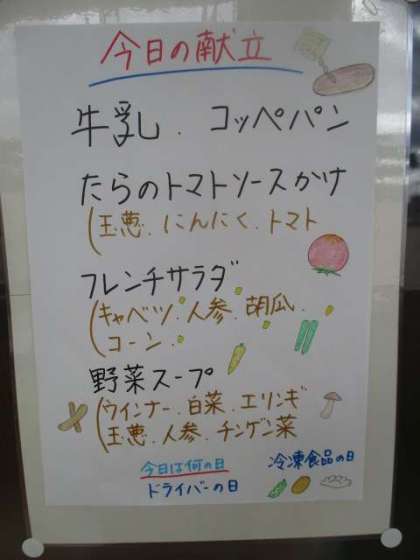 今日の献立
牛乳．コッペパン
たらのトマトソースかけ
(玉葱．にんにく．トマト
フレンチサラダ
(キャベツ．人参．胡瓜
コーン．
野菜スープ
(ウインナー．白菜．エリンギ
玉葱．人参．チンゲン菜
今日は何の日
冷凍食品の日
ドライバーの日